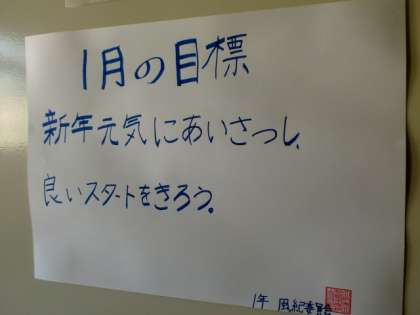 1月の目標
新年元気にあいさつし、
良いスタートをきろう。
1年 風紀委員会